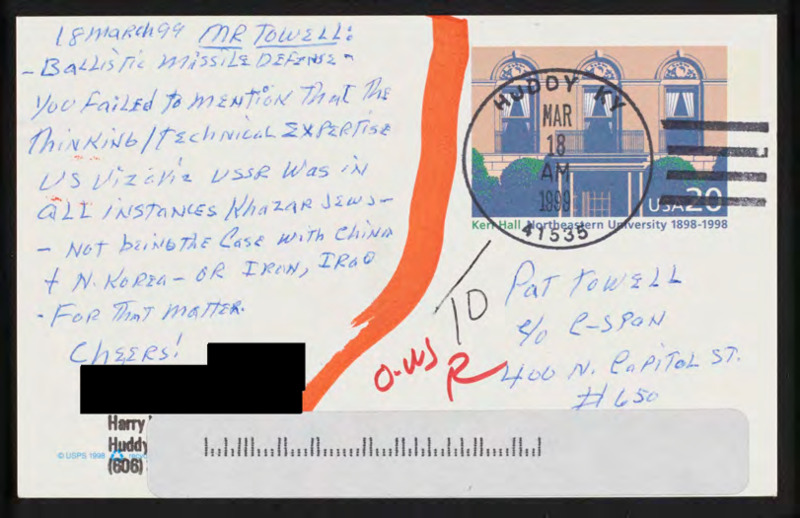 18 March 99 MR TOWELL:
- Ballistic Missile Defense -
You failed to mention that the
Thinking/Technical Expertise
US Vizaviz USSR was in
ALL INSTANCES Khazar Jews -
- Not being the Case with China
+ N. Korea - OR IRAN, IRAQ
- For That Matter.
Cheers!
Harry
Huddy
(606)
© USPS 1998
HUDDY KY
MAR
18
AM
1999
41535
USA 20
Kerr Hall Northeastern University 1898-1998
TO
Pat Towell
c/o C-SPAN
400 N. Capitol St.
#650
O-WS
R